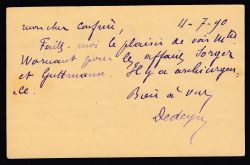 mon cher confrère, 11-7-90
Faites-moi le plaisir de voir Me
Warnant pour les affaires Sorger
et Guttmann. Il y a archiurgen-
ce.
Bien à vous
Dedeyn